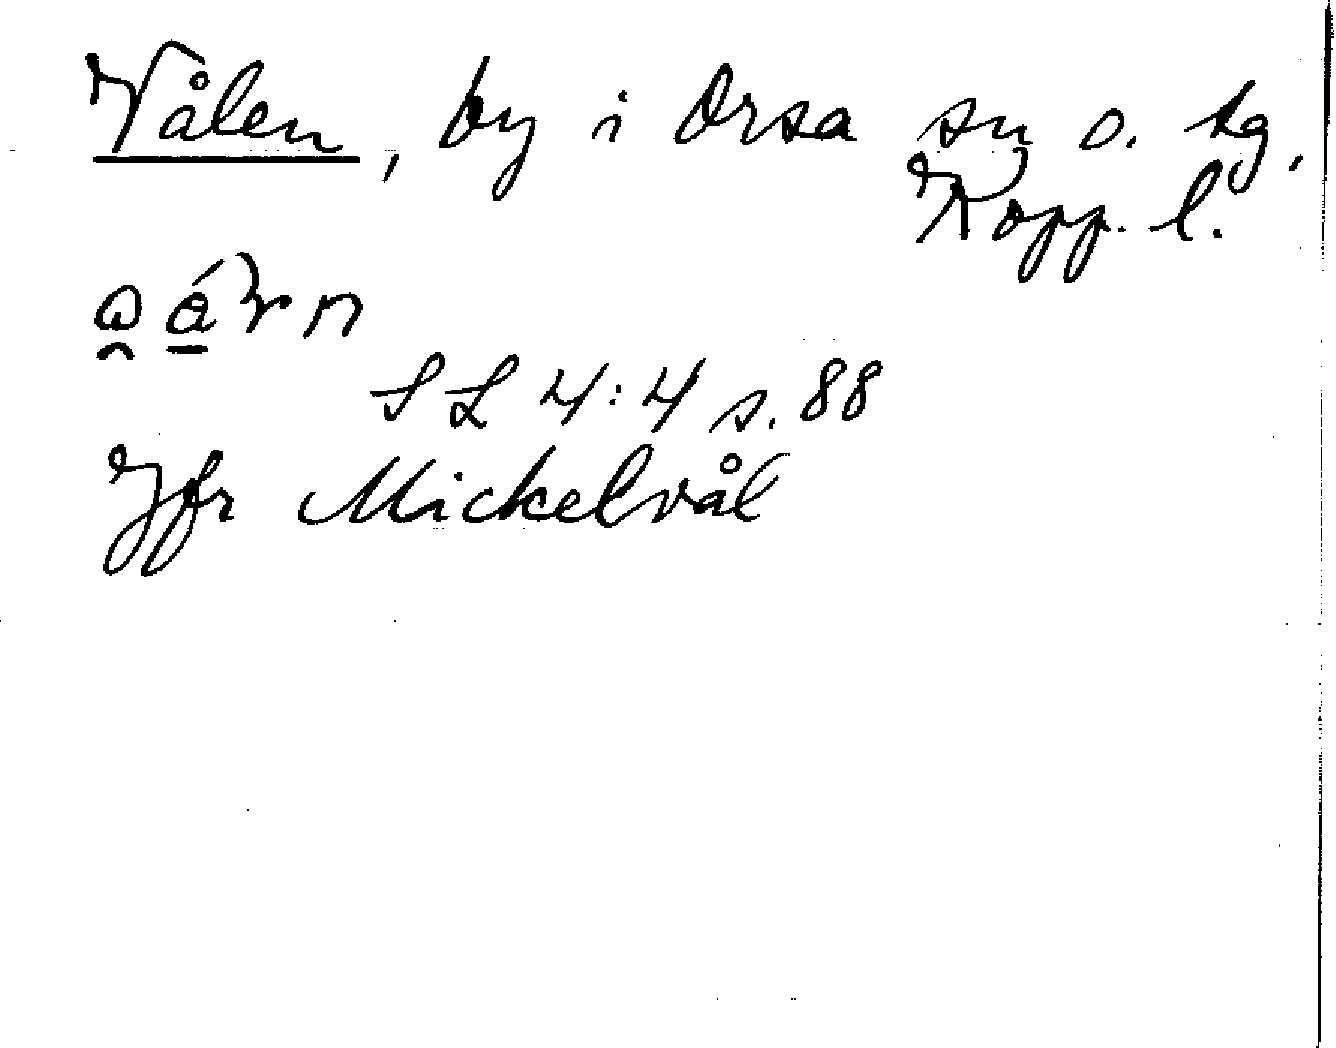 Vålen, by i Orsa sn o. tg,
Kopp. l.
SL 4:4 s. 88
Jfr Mickelvål